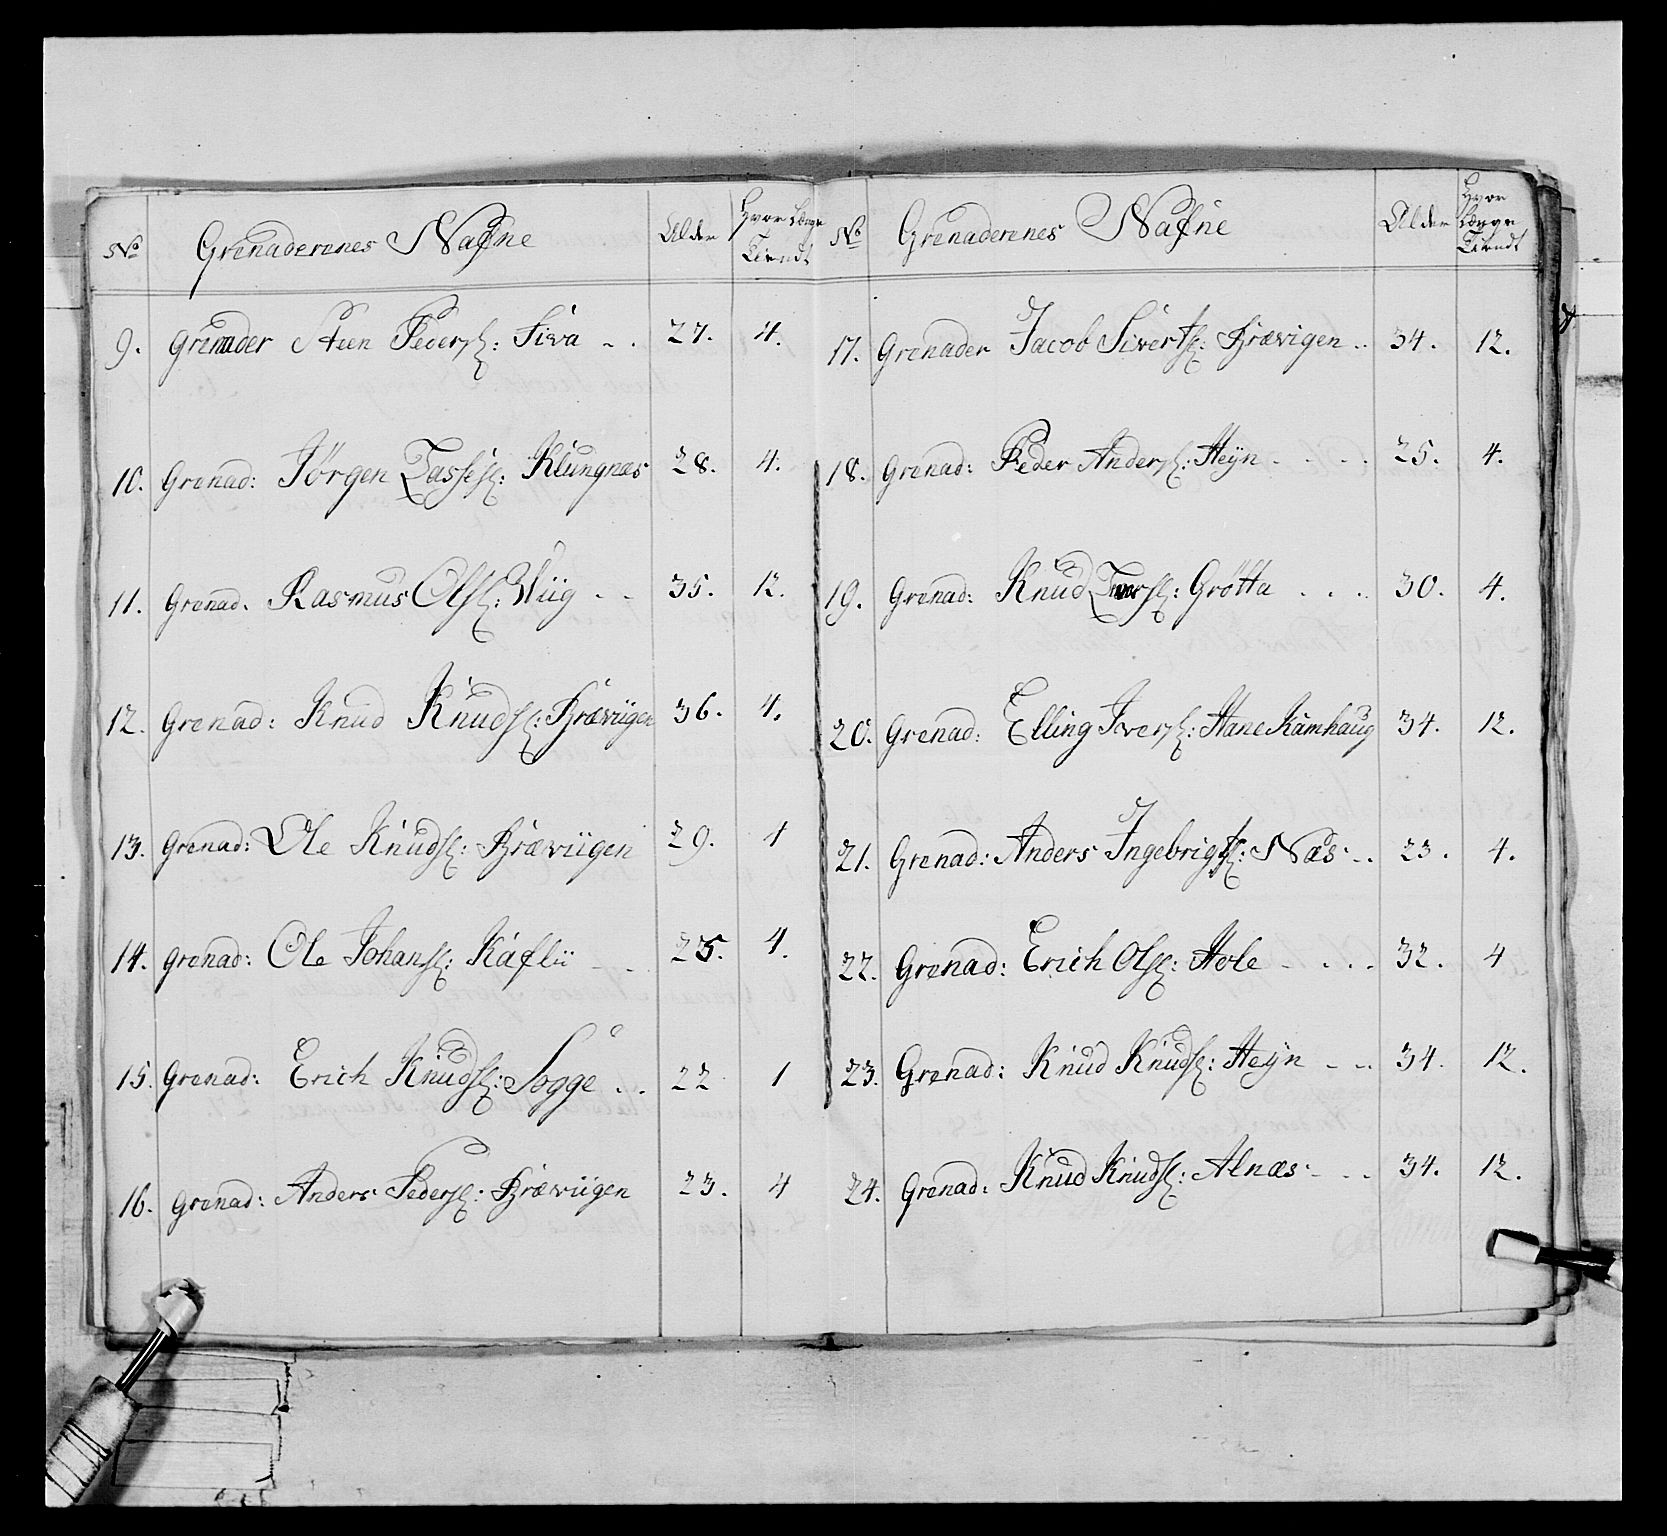 No Grenaderenes Nafne Alder Hvor Længe Tiendt
9. Grenader Steen Peders: Siva - . 27. 4.
10. Grenad: Jørgen Lasses: Klungnæs 28. 4.
11. Grenad. Rasmus Ols: Wiig - - 35. 12.
12. Grenad: Knud Knuds: Brævigen 36. 4.
13. Grenad: Ole Knuds: Brævigen 29. 1
14. Grenad: Ole Johans: Kafli - . 25. 4.
15. Grenad: Erich Knuds: Sogge . . 22 1
16. Grenad: Anders Peders: Brævigen 23. 4
No Grenaderenes Nafne Alder Hvor Længe Tiendt
17. Grenader Jacob Siverts: Brævigen . . 34. 12.
18. Grenad: Peder Anders: Heÿn - - - . 25. 4.
19. Grenad: Knud Ivers: Grøtta . . . 30. 4.
20. Grenad: Elling Ivers: Hanekamhaug 34. 12.
21. Grenad: Anders Ingebrigts: Næs - . 23. 4.
22. Grenad: Erich Ols: Hole - . . . 32. 4
23. Grenad: Knud Knuds: Heÿn - - . 34. 12.
24. Grenad: Knud Knuds: Alnæs - . . 34. 12.